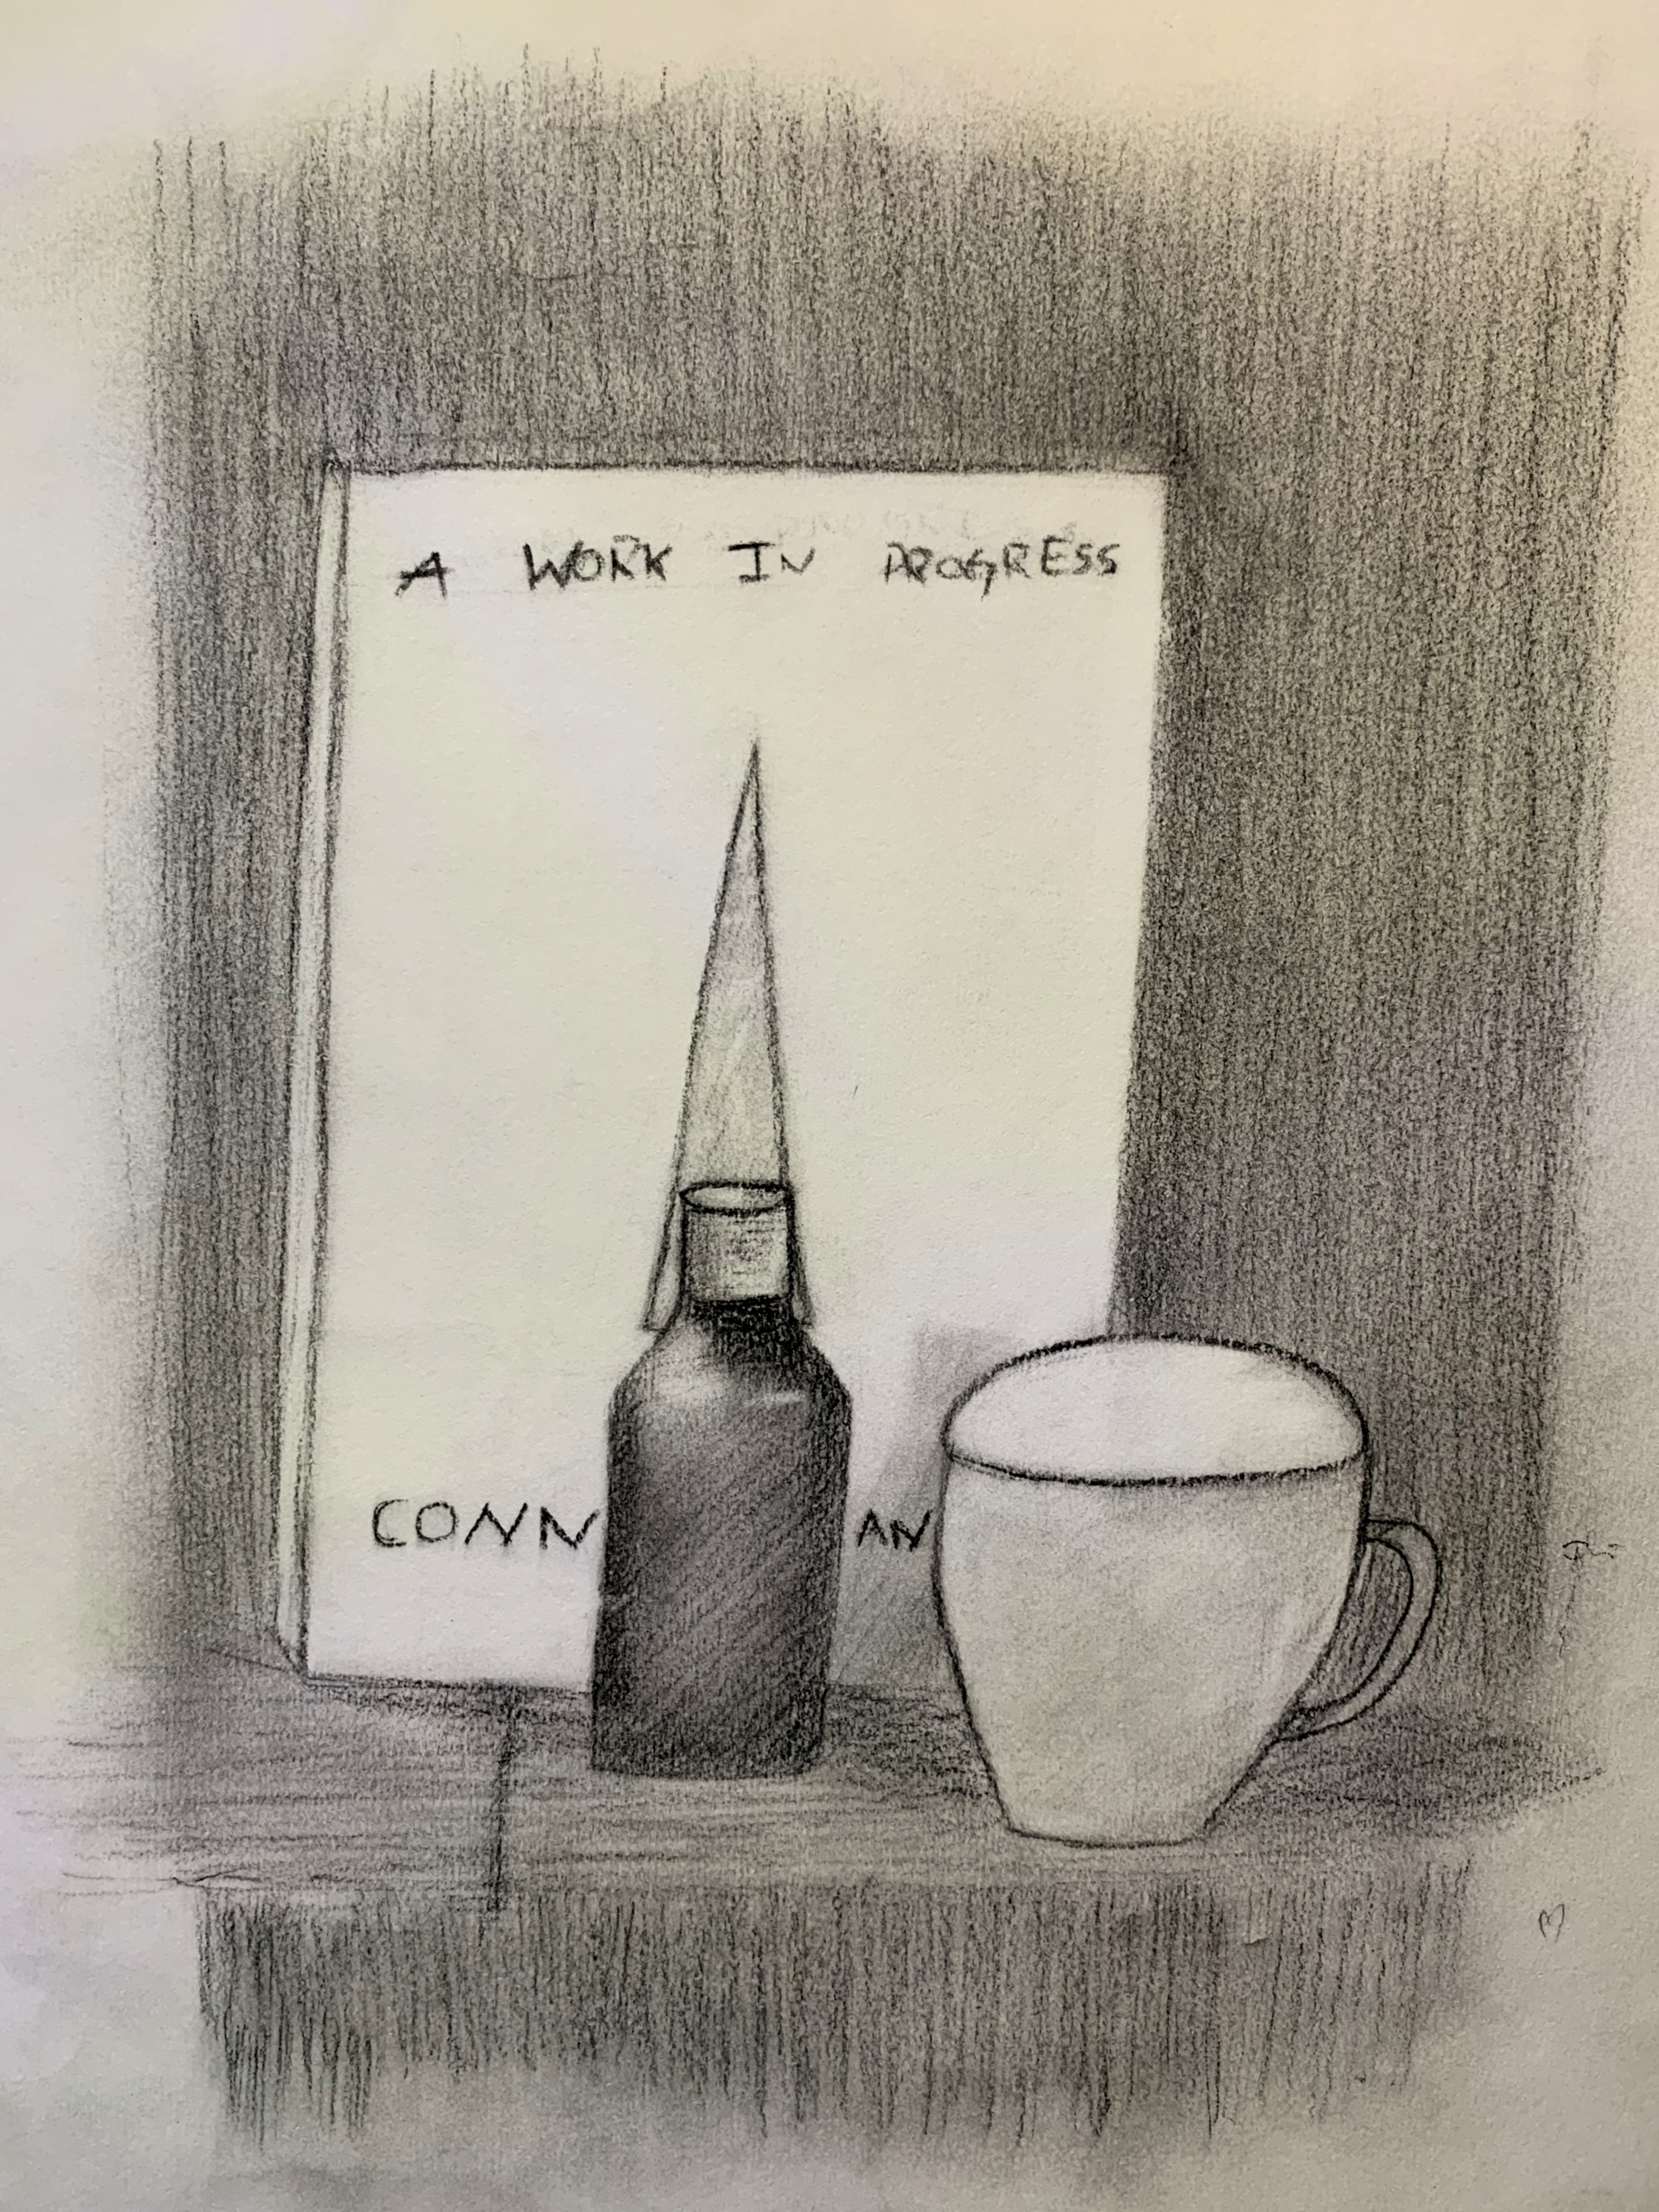 A WORK IN PROGRESS
CONN AN